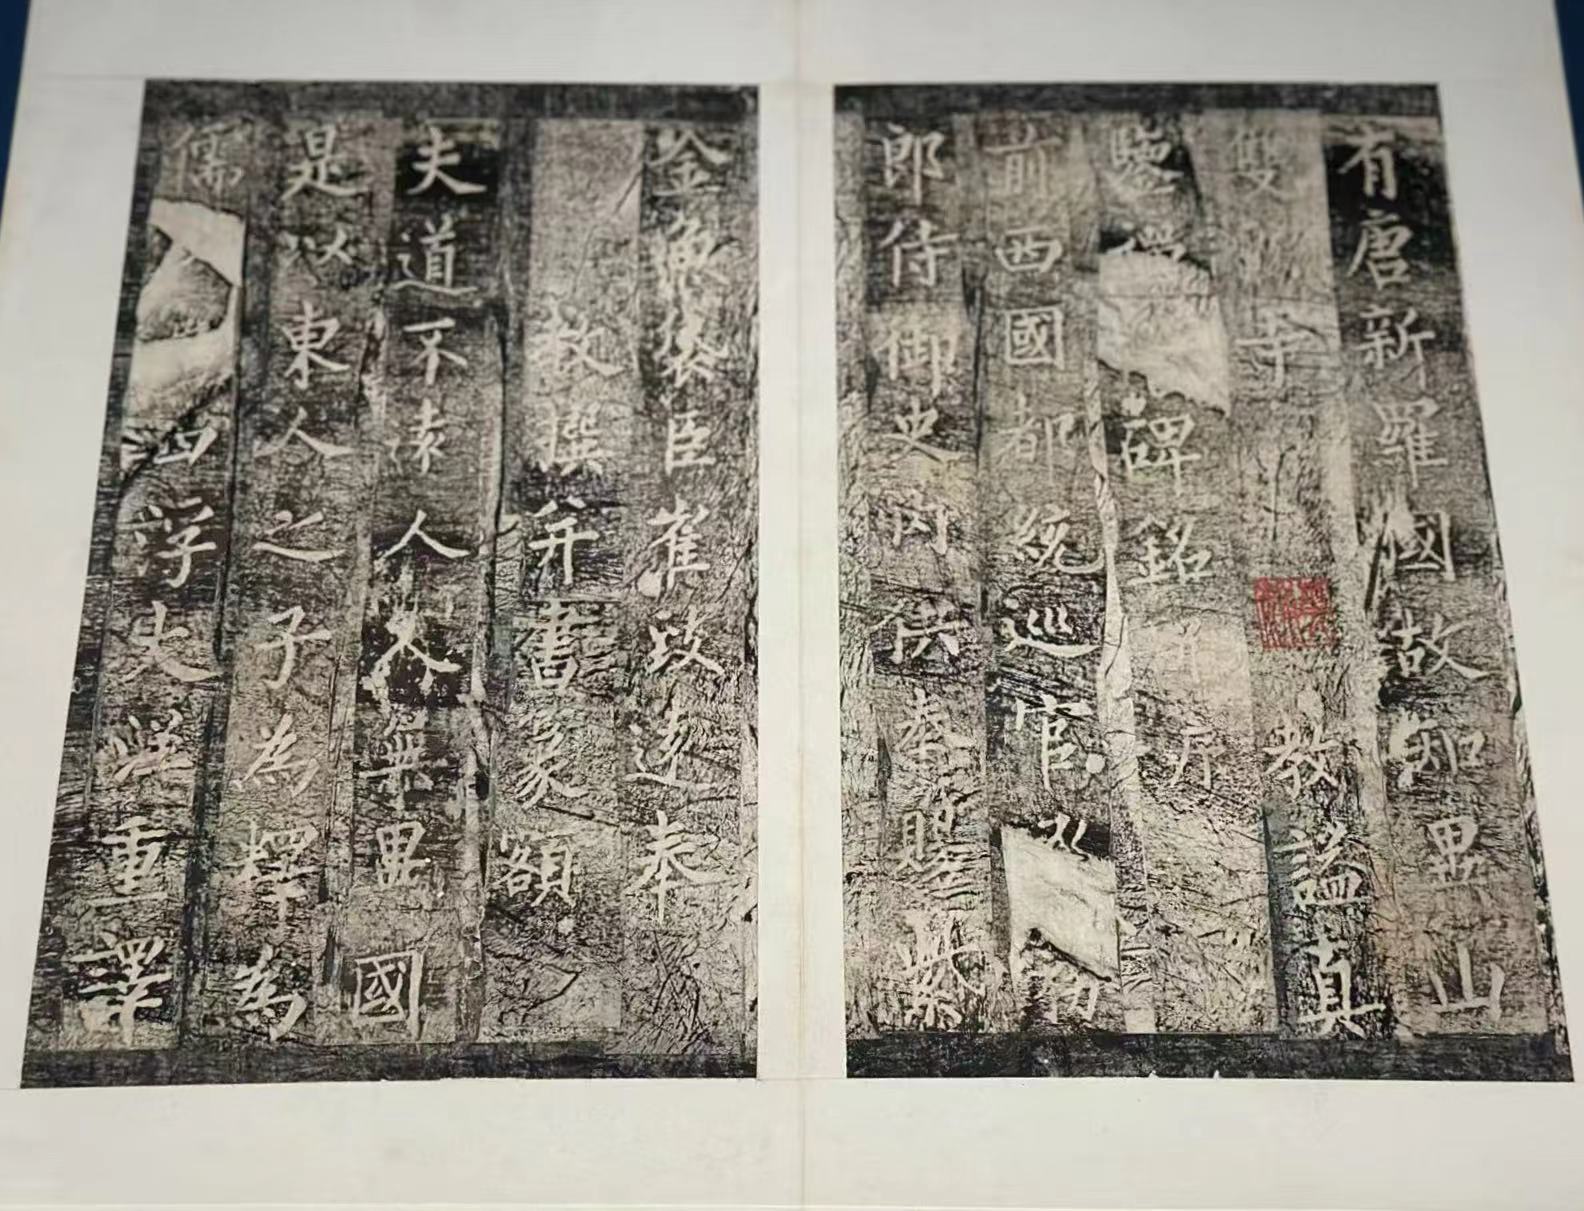 有唐新羅國故知異山
雙谿寺教謚真
鑒禪碑銘并序
前西國都統巡官承務
郎侍御史内供奉賜紫
金魚袋臣崔致遠奉
教撰并書篆額
夫道不遠人人無異國
是以東人之子為釋為
儒西浮大洋重譯